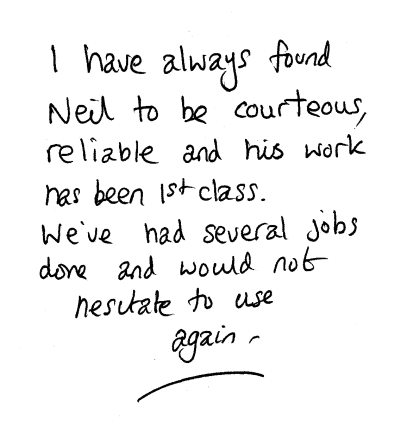 I have always found
Neil to be courteous,
reliable and his work
has been 1st class.
We've had several jobs
done and would not
hesitate to use
again -